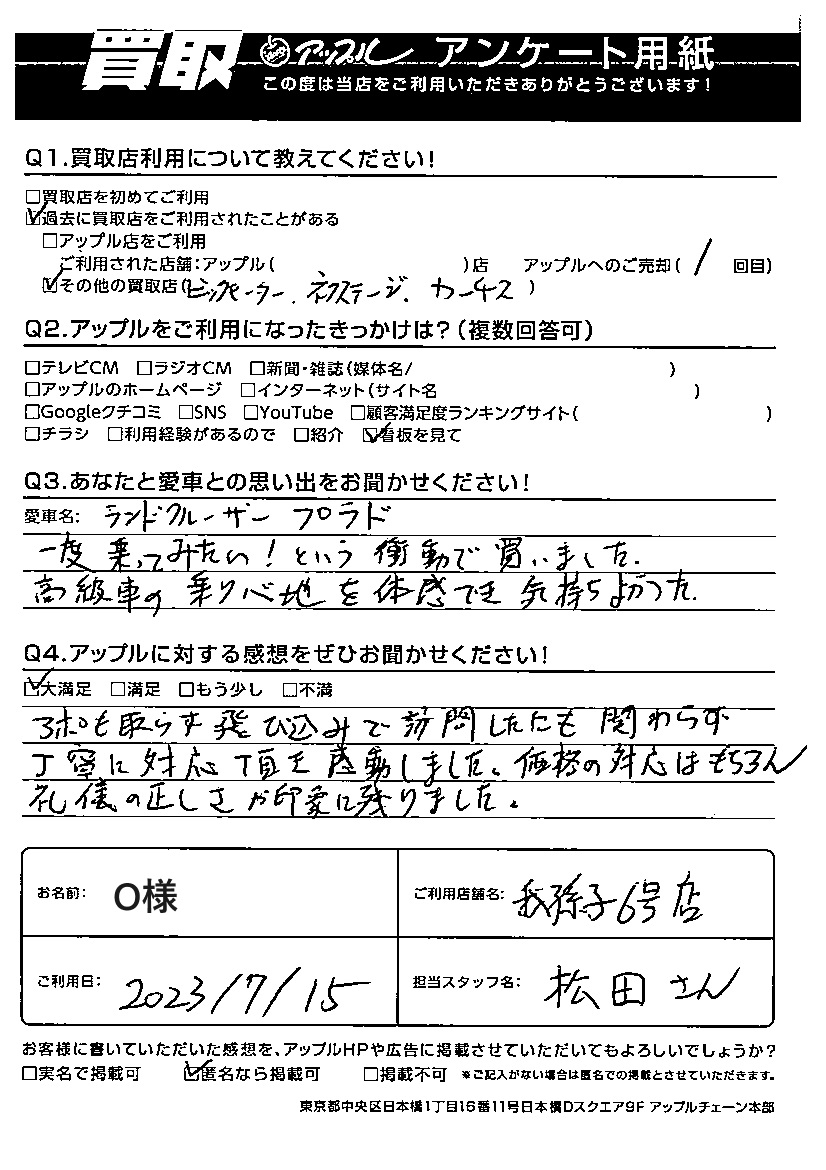 買取 アップル アンケート用紙
この度は当店をご利用いただきありがとうございます!
Q1.買取店利用について教えてください!
□買取店を初めてご利用
☑過去に買取店をご利用されたことがある
□アップル店をご利用
ご利用された店舗:アップル( )店 アップルへのご売却( / 回目)
☑その他の買取店(ビッグモーター、ネクステージ、カーチス )
Q2.アップルをご利用になったきっかけは?(複数回答可)
□テレビCM □ラジオCM □新聞・雑誌(媒体名/ )
□アップルのホームページ □インターネット(サイト名 )
□Googleクチコミ □SNS □YouTube □顧客満足度ランキングサイト( )
□チラシ □利用経験があるので □紹介 ☑看板を見て
Q3.あなたと愛車との思い出をお聞かせください!
愛車名: ランドクルーザー プラド
一度乗ってみたい!という衝動で買いました.
高級車の乗り心地を体感でき気持ちよかった.
Q4.アップルに対する感想をぜひお聞かせください!
☑大満足 □満足 □もう少し □不満
アポも取らず飛び込みで訪問したにも関わらず
丁寧に対応頂き感動しました。価格の対応はもちろん
礼儀の正しさが印象に残りました。
お名前: O様 ご利用店舗名: 我孫子6号店
ご利用日: 2023/7/15 担当スタッフ名: 松田さん
お客様に書いていただいた感想を、アップルHPや広告に掲載させていただいてもよろしいでしょうか?
□実名で掲載可 ☑匿名なら掲載可 □掲載不可 ※ご記入がない場合は匿名での掲載とさせていただきます。
東京都中央区日本橋1丁目16番11号日本橋Dスクエア9F アップルチェーン本部